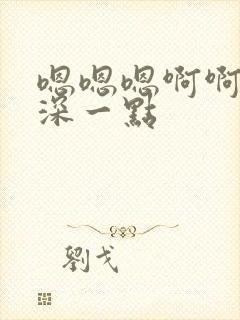 嗯嗯嗯啊啊
深一點
劉戈